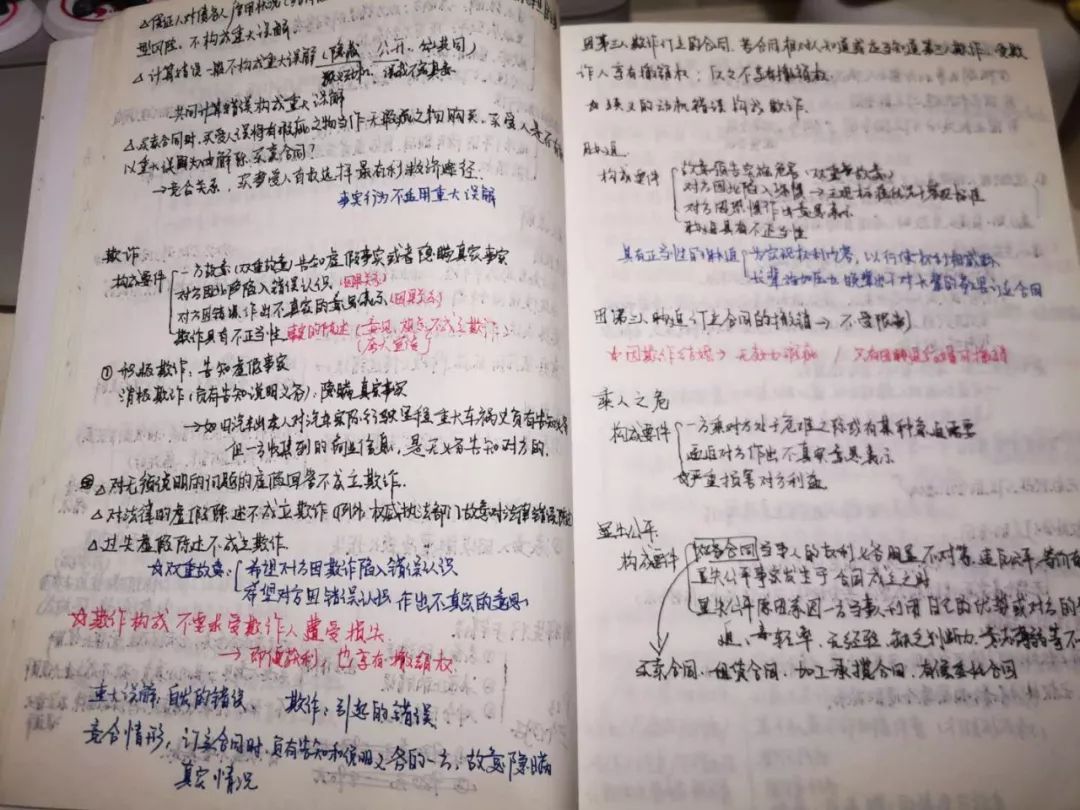 △保证人对债务人
型风险,不构成重大误解
△计算错误一般不构成重大误解(隐藏、公开、共同)
共同计算错误构成重大误解
△买卖合同时,买受人误将有瑕疵之物当作无瑕疵之物购买,买受人
以重大误解为由解除买卖合同?
→竞合关系,买受人自救选择最有利救济途径.
事实行为不适用重大误解
欺诈
构成要件
一方故意(双重故意)告知虚假事实或者隐瞒真实事实
对方因此陷入错误认识(因果关系)
对方因错误作出不真实的意思表示(因果关系)
欺诈具有不正当性 事实的陈述(意见、 不成立欺诈)
(夸大宣传)
①积极欺诈:告知虚假事实
消极欺诈(负有告知说明义务):隐瞒真实事实
→如旧汽车出卖人对汽车实际行驶里程、重大车祸史负有告知义务
但一方收集到的商业信息,是无义务告知对方的.
△对无须说明的问题的虚假回答不成立欺诈.
△对法律的虚假陈述不成立欺诈(例外:权威执法部门故意对法律错误陈述
△过失虚假陈述不成立欺诈.
☆双重故意:
希望对方因欺诈陷入错误认识
希望对方因错误认识作出不真实的意思
☆欺诈构成不要求受欺诈人遭受损失.
→即便获利,也享有撤销权.
重大误解:自出的错误. 欺诈:引起的错误
竞合情形,订立合同时,负有告知和说明义务的一方,故意隐瞒
真实情况
因第三人欺诈订立的合同,若合同相对人知道或应当知道第三人欺诈,受欺
诈人享有撤销权;反之不享有撤销权
☆狭义的动机错误构成欺诈.
胁迫
构成要件
故意预告实施危害(双重故意)
对方因此陷入恐惧→
对方因恐惧作出意思表示
胁迫具有不正当性
具有正当性的胁迫
因第三人胁迫订立合同的撤销→不受限制
乘人之危
构成要件
一方乘对方处于危难之际或有某种急迫需要
迫使对方作出不真实意思表示
严重损害对方利益
显失公平
构成要件
双务合同当事人的权利义务明显不对等,违反公平、等价有
显失公平事实发生于合同成立之时
显失公平原因系因一方当事人利用自己的优势或对方的
迫、轻率、无经验、缺乏判断力、意志薄弱等不
买卖合同、租赁合同、加工承揽合同、有偿委托合同